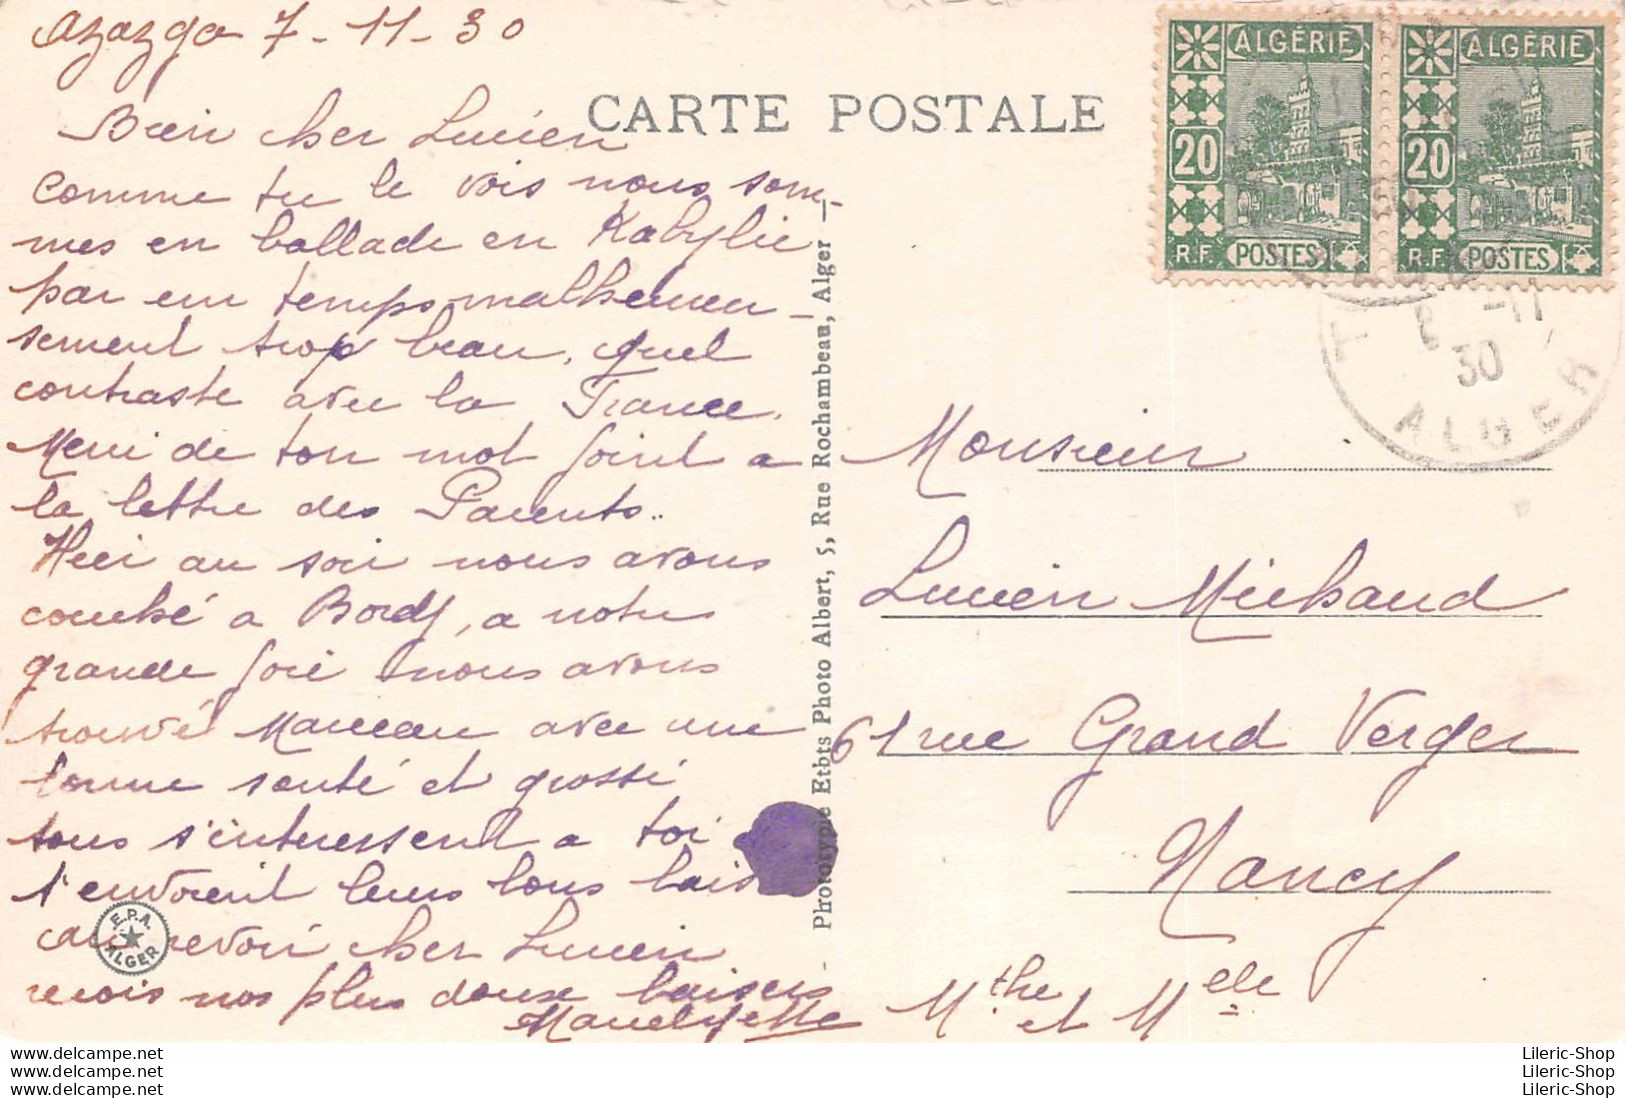 Azazga 7-11-30
CARTE POSTALE
Bien cher Lucien
comme tu le vois nous som-
mes en ballade en Kabylie
par un temps malheureu-
sement trop beau, quel
contraste avec la France.
Merci de ton mot joint a
la lettre des Parents..
Hier au soir nous avons
couché a Bordj, a notre
grande joie nous avons
trouvé Marceau avec une
bonne santé et grossi
tous s'interessent a toi
t'envoient leurs bons bais
au revoir cher Lucien
recois nos plus doux baisers
E.P.A.
ALGER
Phototypie Etbts Photo Albert, 5, Rue Rochambeau, Alger
ALGÉRIE
20
R.F. POSTES
ALGÉRIE
20
R.F. POSTES
8 -11
30
ALGER
Monsieur
Lucien Michaud
61 rue Grand Verger
Nancy
Mthe et Melle
www.delcampe.net
www.delcampe.net
www.delcampe.net
Lileric-Shop
Lileric-Shop
Lileric-Shop